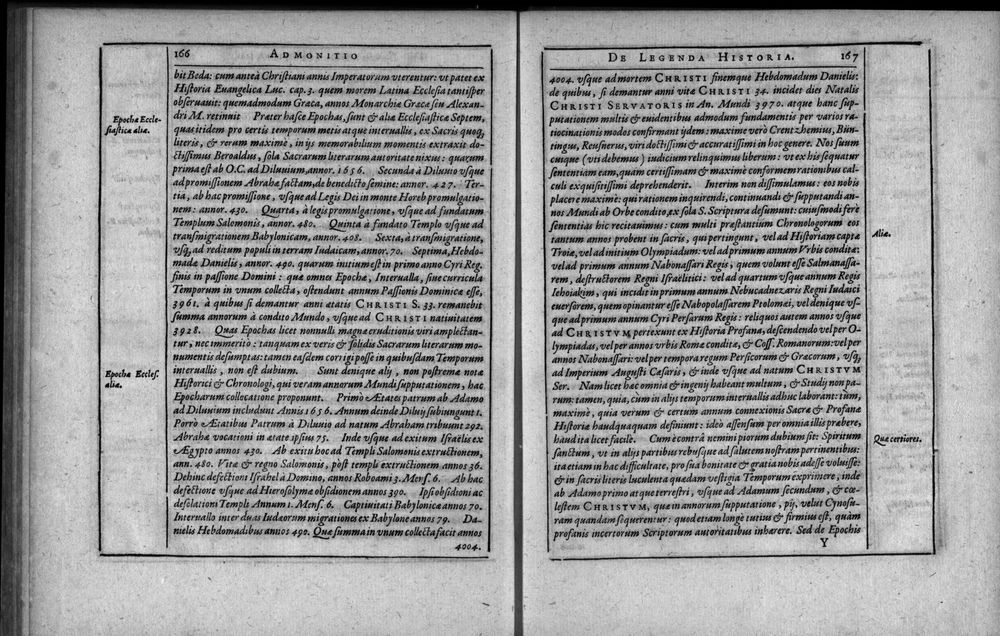 166 ADMONITIO
bit Beda: cum anteà Christiani annis Imperatorum vterentur: vt patet ex
Historia Euangelica Luc. cap. 3. quem morem Latina Ecclesia tantisper
obseruauit: quemadmodum Græca, annos Monarchiæ Græcæ siu Alexan-
dri M. retinuit Præter hasce Epochas, sunt & aliæ Ecclesiasticæ Septem,
Epochæ Eccle-
siasticæ aliæ.
quas itidem pro certis temporum metis atque interuallis, ex Sacris quoq,
literis, & rerum maximè, in ijs memorabilium momentis extraxit do-
ctissimus Beroaldus, sola Sacrarum literarum autoritate nixus: quarum
prima est ab O.C. ad Diluuium, annor. 1656. Secunda à Diluuio vsque
ad promissionem Abrahæ factam, de benedicto semine: annor. 427. Ter-
tia, ab hac promissione, vsque ad Legis Dei in monte Horeb promulgatio-
nem: annor. 430. Quarta, à legis promulgatione, vsque ad fundatum
Templum Salomonis, annor. 480. Quinta à fundato Templo vsque ad
transmigrationem Babylonicam, annor. 408. Sexta, à transmigratione,
vsq, ad reditum populi in terram Iudaicam, annor. 70. Septima, Hebdo-
madæ Danielis, annor. 490. quarum initium est in primo anno Cyri Reg.
finis in passione Domini: quæ omnes Epochæ, Interualla, siue curricula
Temporum in vnum collecta, ostendunt annum Passionis Dominicæ esse,
3961. à quibus si demantur anni ætatis CHRISTI S. 33. remanebit
summa annorum à condito Mundo, vsque ad CHRISTI natiuitatem
3928. Quas Epochas licet nonnulli magnæ eruditionis viri amplectan-
tur, nec immeritò: tanquam ex veris & solidis Sacrarum literarum mo-
numentis desumptas: tamen easdem corrigi posse in quibusdam Temporum
Epochæ Eccles.
aliæ.
interuallis, non est dubium. Sunt denique alij, non postremæ notæ
Historici & Chronologi, qui veram annorum Mundi supputationem, hac
Epocharum collocatione proponunt. Primò Ætates patrum ab Adamo
ad Diluuium includunt Annis 1656. Annum deinde Diluij subiungunt 1.
Porrò Ætatibus Patrum à Diluuio ad natum Abraham tribuunt 292.
Abrahæ vocationi in ætate ipsius 75. Inde vsque ad exitum Israëlis ex
Ægypto annos 430. Ab exitu hoc ad Templi Salomonis extructionem,
ann. 480. Vitæ & regno Salomonis, pòst templi extructionem annos 36.
Dehinc defectioni Israhel à Domino, annos Roboami 3. Mens. 6. Ab hac
defectione vsque ad Hierosolymæ obsidionem annos 390. Ipsi obsidioni ac
desolationi Templi Annum 1. Mens. 6. Captiuitati Babylonicæ annos 70.
Interuallo inter duas Iudæorum migrationes ex Babylone annos 79. Da-
nielis Hebdomadibus annos 490. Quæ summa in vnum collecta facit annos
4004.
DE LEGENDA HISTORIA. 167
4004. vsque ad mortem CHRISTI finemque Hebdomadum Danielis:
de quibus, si demantur anni vitæ CHRISTI 34. incidet dies Natalis
CHRISTI SERVATORIS in An. Mundi 3970. atque hanc sup-
putationem multis & euidentibus admodum fundamentis per varios ra-
tiocinationis modos confirmant ijdem: maximè verò Crentzhemius, Bün-
tingus, Reusnerus, viri doctissimi & accuratissimi in hoc genere. Nos suum
cuique (vt is debemus) iudicium relinquimus liberum: vt ex his sequatur
sententiam eam, quam certissimam & maximè conformem rationibus cal-
culi exquisitissimi deprehenderit. Interim non dissimulamus: eos nobis
placere maximè: qui rationem inquirendi, continuandi & supputandi an-
nos Mundi ab Orbe condito, ex sola S. Scriptura desumunt: cuiusmodi ferè
sententias hic recitauimus: cum multi præstantium Chronologorum eos
Aliæ.
tantum annos probent in sacris, qui pertingunt, vel ad Historiam captæ
Troiæ, vel ad initium Olympiadum: vel ad primum annum Vrbis conditæ:
vel ad primum annum Nabonassari Regis, quem volunt esse Salmanassa-
rem, destructorem Regni Israelitici: vel ad quartum vsque annum Regis
Iehoiakim, qui incidit in primum annum Nebucadnezaris Regni Iudaici
euersorem, quem opinantur esse Nabopolassarem Ptolomei, vel denique vs-
que ad primum annum Cyri Persarum Regis: reliquos autem annos vsque
ad CHRISTVM pertexunt ex Historia Profana, descendendo vel per O-
lympiadas, vel per annos vrbis Romæ conditæ, & Coss. Romanorum: vel per
annos Nabonassari: vel per tempora regum Persicorum & Græcorum, vsq,
ad Imperium Augusti Cæsaris, & inde vsque ad natum CHRISTVM
Ser. Nam licet hæc omnia & ingenij habeant multum, & Studij non pa-
rum: tamen, quia, cum in alijs temporum interuallis adhuc laborant: tùm,
maximè, quia verum & certum annum connexionis Sacræ & Profanæ
Historiæ haudquaquam definiunt: ideò assensum per omnia illis præbere,
Quæ certiores.
haud ita licet facilè. Cum è contrà nemini piorum dubium sit: Spiritum
sanctum, vt in alijs partibus rebusque ad salutem nostram pertinentibus:
ita etiam in hac difficultate, pro sua bonitate & gratia nobis adesse voluisse:
& in sacris literis luculenta quædam vestigia Temporum exprimere, inde
ab Adamo primo atque terrestri, vsque ad Adamum secundum, & cœ-
lestem CHRISTVM, quæ in annorum supputatione, pij, velut Cynosu-
ram quandam sequerentur: quod etiam longè tutius & firmius est, quàm
profanis incertorum Scriptorum autoritatibus inhærere. Sed de Epochis
Y